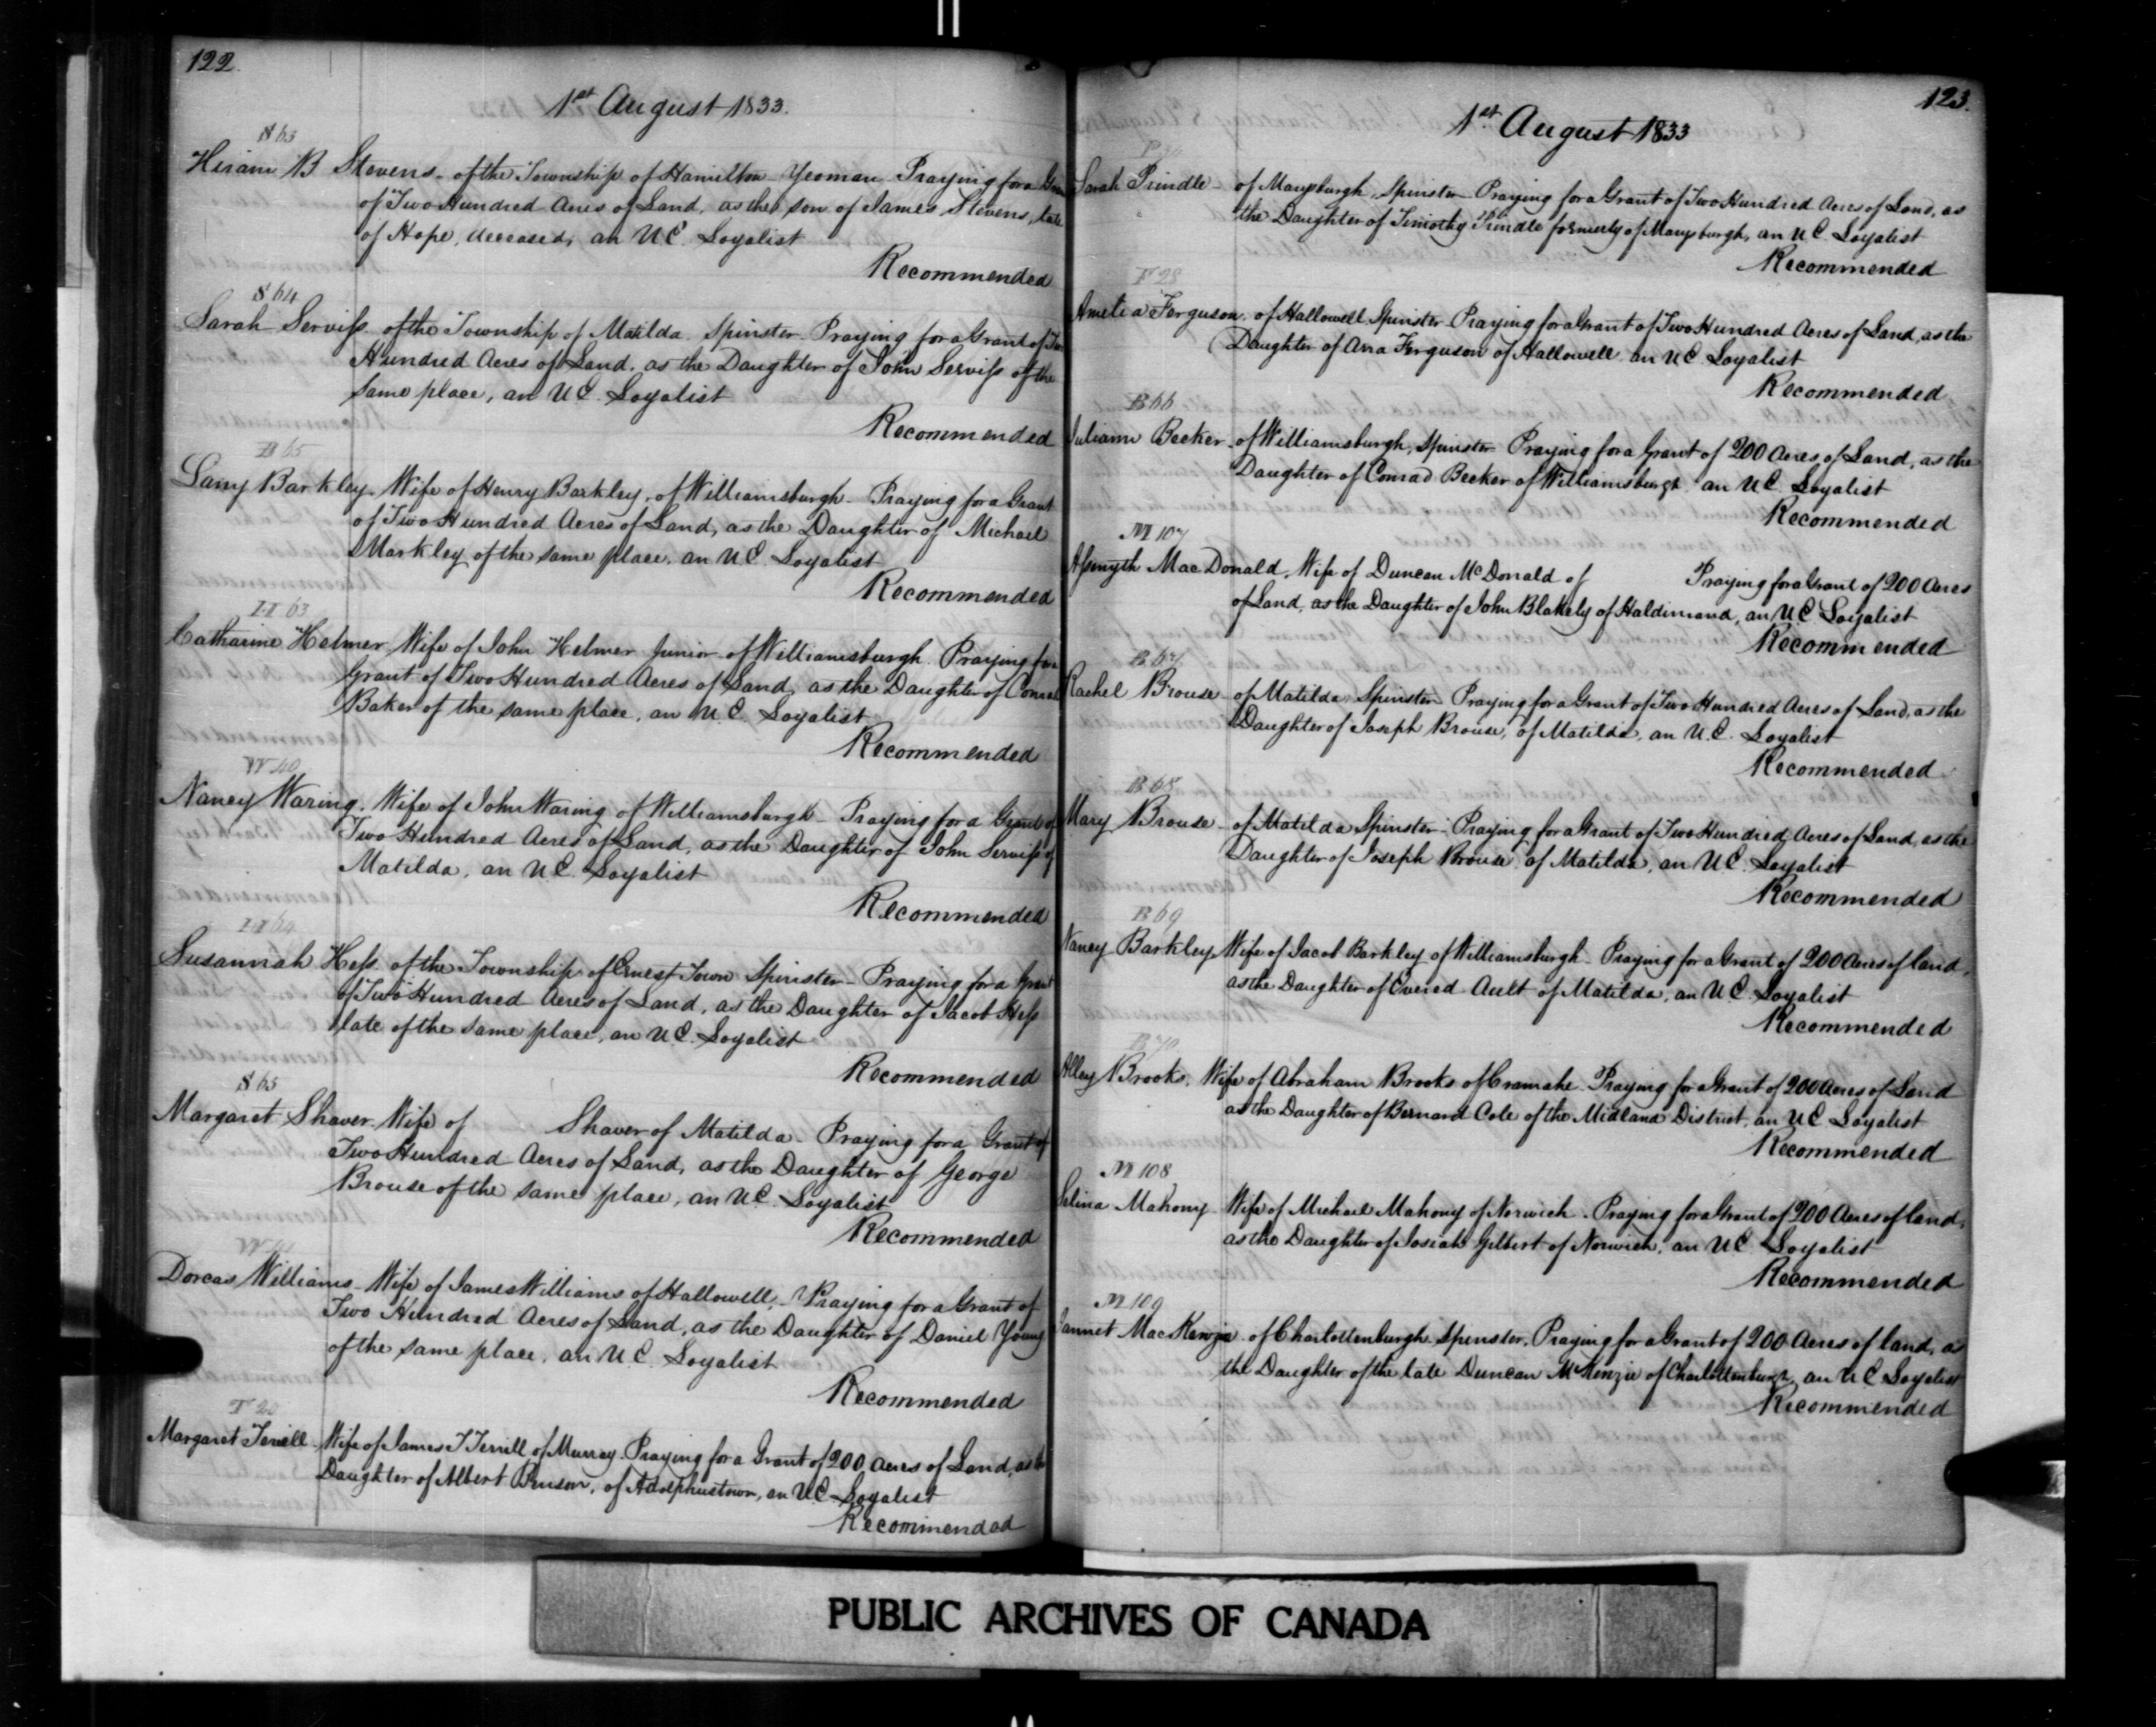 122.
1st August 1833.
S 63
Hiram B Stevens - of the Township of Hamilton Yeoman Praying for a
of Two Hundred Acres of Land, as the son of James Stevens, late
of Hope, deceased, an U.E. Loyalist
Recommended
S 64
Sarah Serviss of the Township of Matilda Spinster Praying for a Grant of Two
Hundred Acres of Land, as the Daughter of John Serviss of the
same place, an U.E. Loyalist
Recommended
B 65
Lany Barkley, Wife of Henry Barkley, of Williamsburgh - Praying for a Grant
of Two Hundred Acres of Land, as the Daughter of Michael
Markley of the same place, an U.E. Loyalist
Recommended
H 63
Catharine Helmer Wife of John Helmer Junior of Williamsburgh Praying for
Grant of Two Hundred Acres of Land, as the Daughter of Conrad
Baker of the same place, an U.E. Loyalist
Recommended
W 40
Nancy Waring. Wife of John Waring of Williamsburgh - Praying for a Grant of
Two Hundred Acres of Land, as the Daughter of John Serviss of
Matilda, an U.E. Loyalist
Recommended
H 64
Susannah Hess of the Township of Ernest Town Spinster - Praying for a Grant
of Two Hundred Acres of Land, as the Daughter of Jacob Hess
late of the same place, an U.E. Loyalist
Recommended
S 65
Margaret Shaver Wife of Shaver of Matilda - Praying for a Grant of
Two Hundred Acres of Land, as the Daughter of George
Brouse of the same place, an U.E. Loyalist
Recommended
W 41
Dorcas Williams - Wife of James Williams of Hallowell, - Praying for a Grant of
Two Hundred Acres of Land, as the Daughter of Daniel Young
of the same place, an U.E. Loyalist
Recommended
T 20
Margaret Terrill Wife of James T Terrill of Murray Praying for a Grant of 200 Acres of Land, as the
Daughter of Albert Benson, of Adolphustown, an U.E. Loyalist
Recommended
123.
1st August 1833
Sarah Prindle - of Marysburgh, Spinster Praying for a Grant of Two Hundred Acres of Land, as
the Daughter of Timothy Prindle formerly of Marysburgh, an U.E. Loyalist
Recommended
F 28
Amelia Ferguson of Hallowell Spinster Praying for a Grant of Two Hundred Acres of Land, as the
Daughter of Arra Ferguson of Hallowell an U.E. Loyalist
Recommended
B 66
Juliann Becker of Williamsburgh, Spinster Praying for a Grant of 200 Acres of Land, as the
Daughter of Conrad Becker of Williamsburgh an U.E. Loyalist
Recommended
M 107
Assmyth MacDonald, Wife of Duncan McDonald of Praying for a Grant of 200 Acres
of Land, as the Daughter of John Blakely of Haldimand, an U.E. Loyalist
Recommended
B 67
Rachel Brouse of Matilda Spinster Praying for a Grant of Two Hundred Acres of Land, as the
Daughter of Joseph Brouse, of Matilda, an U.E. Loyalist
Recommended
B 68
Mary Brouse - of Matilda Spinster - Praying for a Grant of Two Hundred Acres of Land, as the
Daughter of Joseph Brouse of Matilda, an U.E. Loyalist
Recommended
B 69
Nancy Barkley Wife of Jacob Barkley of Williamsburgh - Praying for a Grant of 200 Acres of land,
as the Daughter of Evered Ault of Matilda, an U.E. Loyalist
Recommended
B 70
Alley Brooks, Wife of Abraham Brooks of Cramahe Praying for a Grant of 200 Acres of Land
as the Daughter of Bernard Cole of the Midland District, an U.E. Loyalist
Recommended
M 108
Selina Mahony Wife of Michael Mahony of Norwich. Praying for a Grant of 200 Acres of land,
as the Daughter of Josiah Gilbert of Norwich, an U.E. Loyalist
Recommended
M 109
Jannet MacKenzie of Charlottenburgh Spinster. Praying for a Grant of 200 Acres of land, as
the Daughter of the late Duncan McKenzie of Charlottenburgh, an U.E. Loyalist
Recommended
PUBLIC ARCHIVES OF CANADA